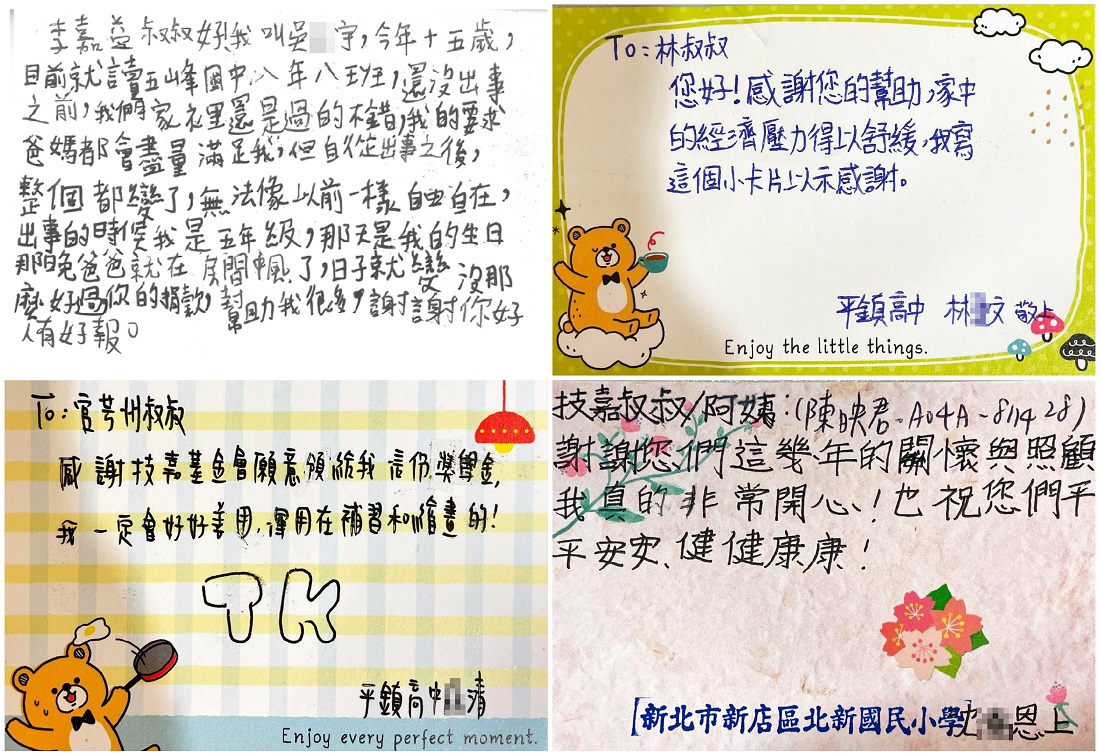 李嘉益叔叔好,我叫吳宇,今年十五歲,
目前就讀五峰國中八年八班,還沒出事
之前,我們家裡還是過的不錯,我的要求
爸媽都會盡量滿足我,但自從出事之後,
整個都變了,無法像以前一樣自由自在,
出事的時候我是五年級,那天是我的生日
那晚爸爸就在房間中風了,日子就變沒那
麼好過你的捐款,幫助我很多,謝謝你好
人有好報。
To:林叔叔
您好!感謝您的幫助,家中
的經濟壓力得以舒緩,我寫
這個小卡片以示感謝。
平鎮高中 林文 敬上
Enjoy the little things.
To:官芳州叔叔
感謝技嘉基金會願意頒給我這份獎學金,
我一定會好好善用,運用在補習和繪畫的!
TK
平鎮高中清
Enjoy every perfect moment.
技嘉叔叔/阿姨:(陳映君-A04A-811428)
謝謝您們這幾年的關懷與照顧
我真的非常開心!也祝您們平
平安安、健健康康!
新北市新店區北新國民小學沈恩上